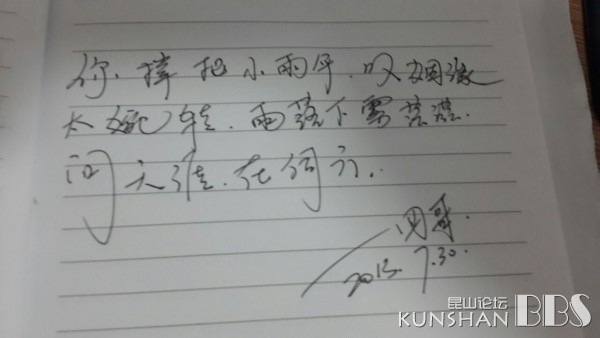 你 撑把小雨伞.叹姻缘
太婉转.雨落下雾茫茫.
问天涯.在何方.
周哥.
2013.7.30.
昆山论坛
KUNSHAN BBS